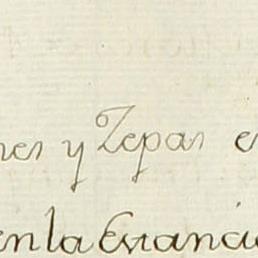 nes y Zepas e
en la Estancia